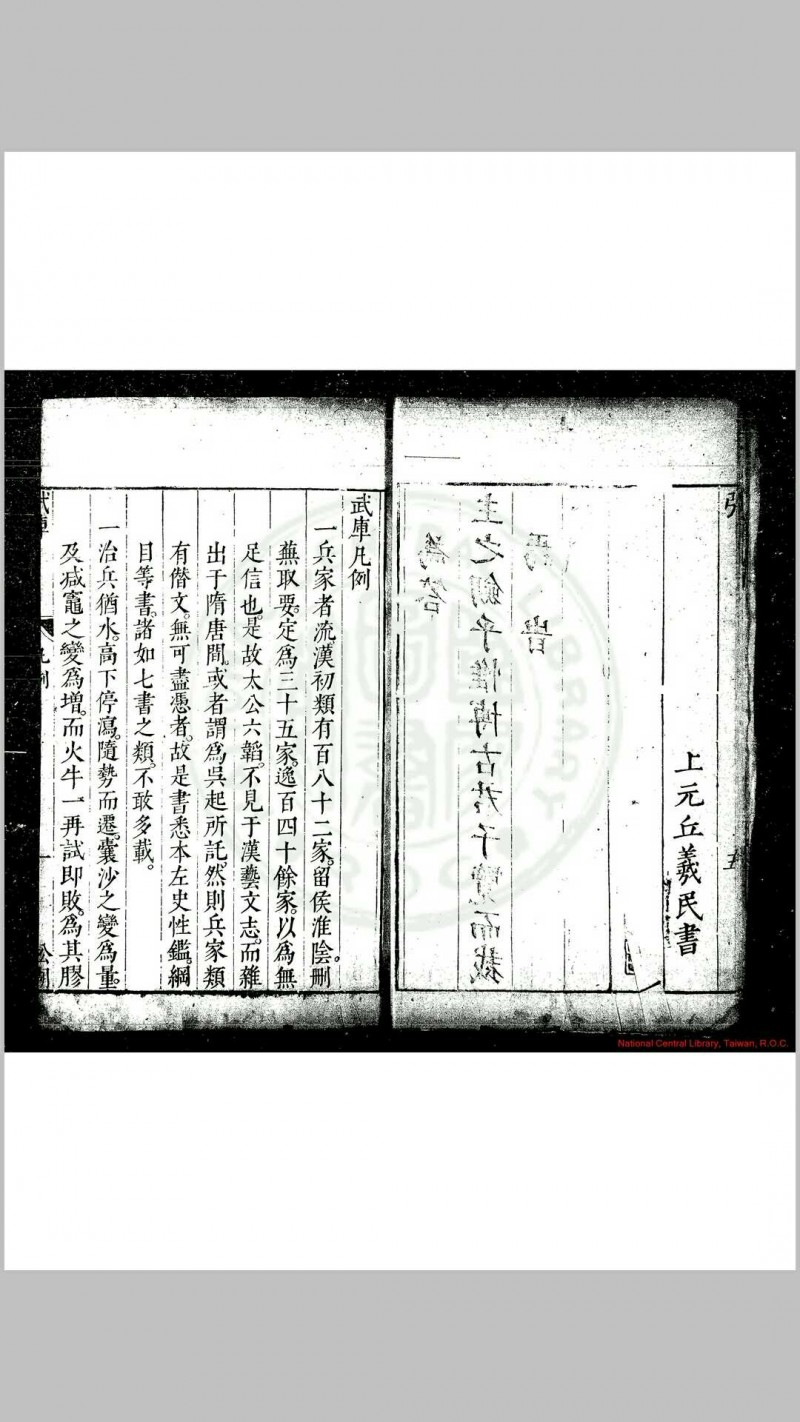 上元丘義民書
主之劒乎惟博古君子覽而裁
焉
武庫凡例
一兵家者流。漢初類有百八十二家。留侯淮陰。刪
蕪取要。定為三十五家。逸百四十餘家。以為無
足信也。是故太公六韜。不見于漢藝文志。而雜
出于隋唐間。或者謂為吳起所託。然則兵家類
有僭文。無可盡憑者。故是書悉本左史性鑑。綱
目等書。諸如七書之類。不敢多載。
一治兵猶水。高下停瀉。隨勢而遷。囊沙之變為量。
及減竈之變為增。而火牛一再試即敗。為其膠
武庫
凡例
National Central Library, Taiwan, R.O.C.